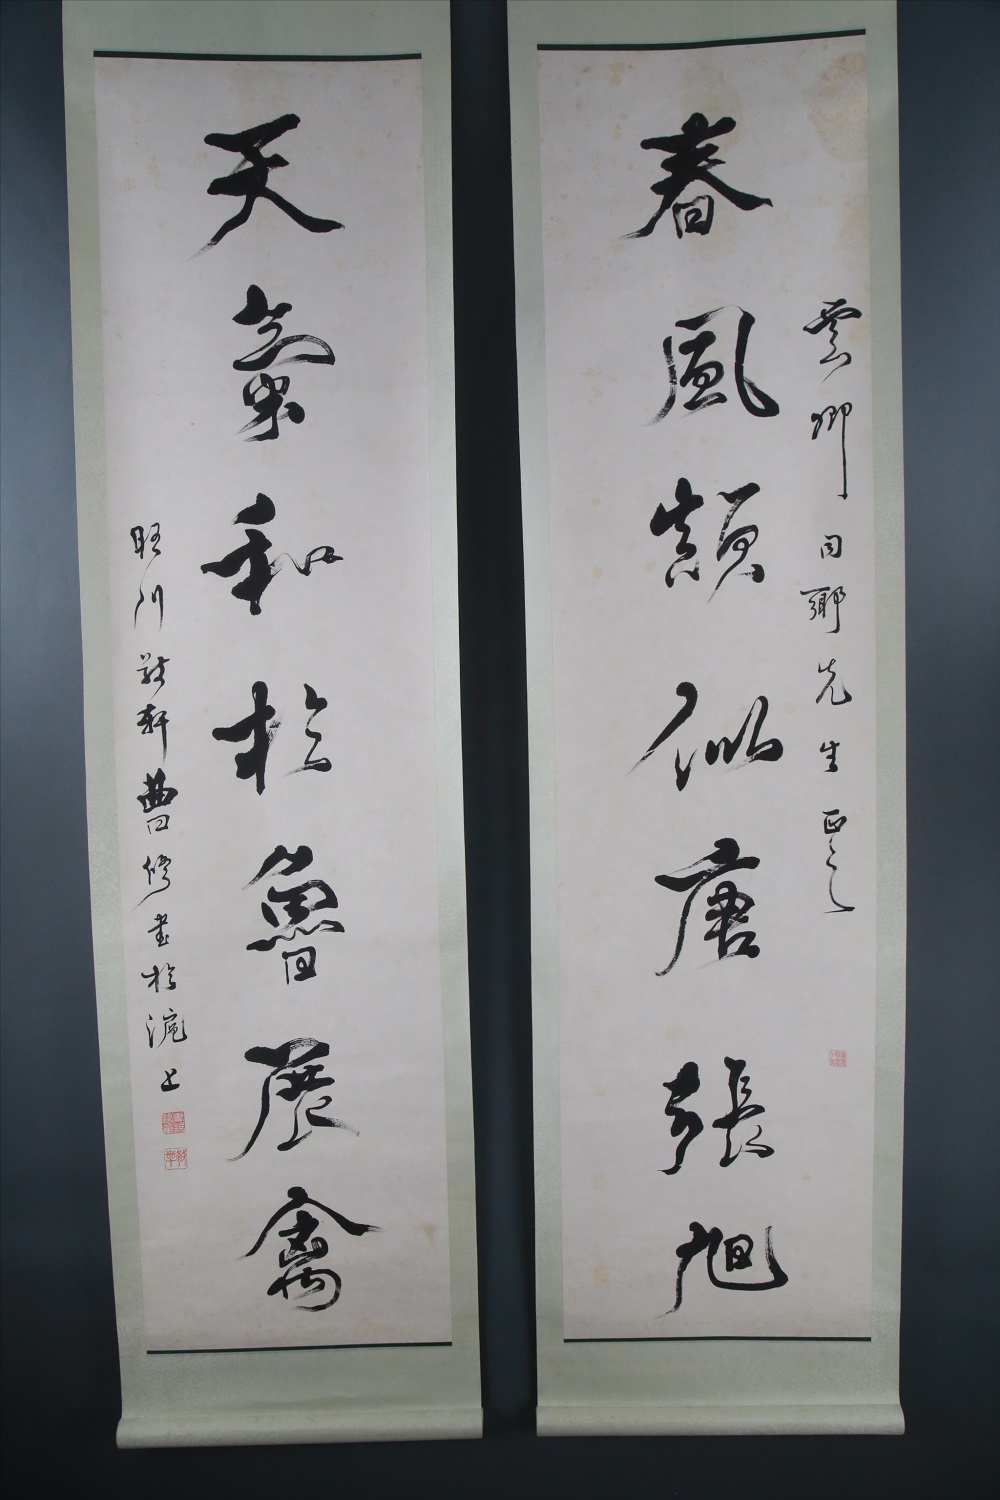 雲卿同鄉先生正之
春風顛似唐張旭
天氣和於魯展禽
旺川敬軒曹修書於滬上